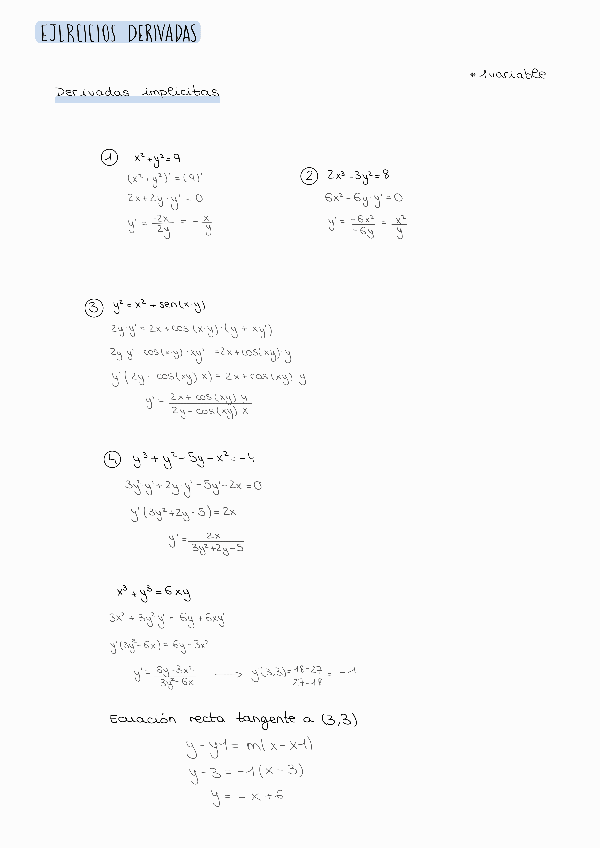 EJERCICIOS DERIVADAS
* 1 variable
Derivadas implícitas
① x² + y² = 9
(x² + y²)' = (9)'
2x + 2y · y' = 0
y' = -2x/2y = - x/y
② 2x³ - 3y² = 8
6x² - 6y · y' = 0
y' = -6x²/-6y = x²/y
③ y² = x² + sen(x·y)
2y·y' = 2x + cos(x·y)·(y + xy')
2y y' - cos(x·y)·xy' = 2x + cos(xy) y
y'(2y - cos(xy) x) = 2x + cos(xy) y
y' = 2x + cos(xy) y / 2y - cos(xy) x
④ y³ + y² - 5y - x² = -4
3y² y' + 2y y' - 5y' - 2x = 0
y'(3y² + 2y - 5) = 2x
y' = 2x / 3y² + 2y - 5
x³ + y³ = 6xy
3x² + 3y² y' = 6y + 6xy'
y'(3y² - 6x) = 6y - 3x²
y' = 6y - 3x² / 3y² - 6x ----> y'(3,3) = 18-27 / 27-18 = -1
Ecuación recta tangente a (3,3)
y - y1 = m(x - x1)
y - 3 = -1(x - 3)
y = - x + 6